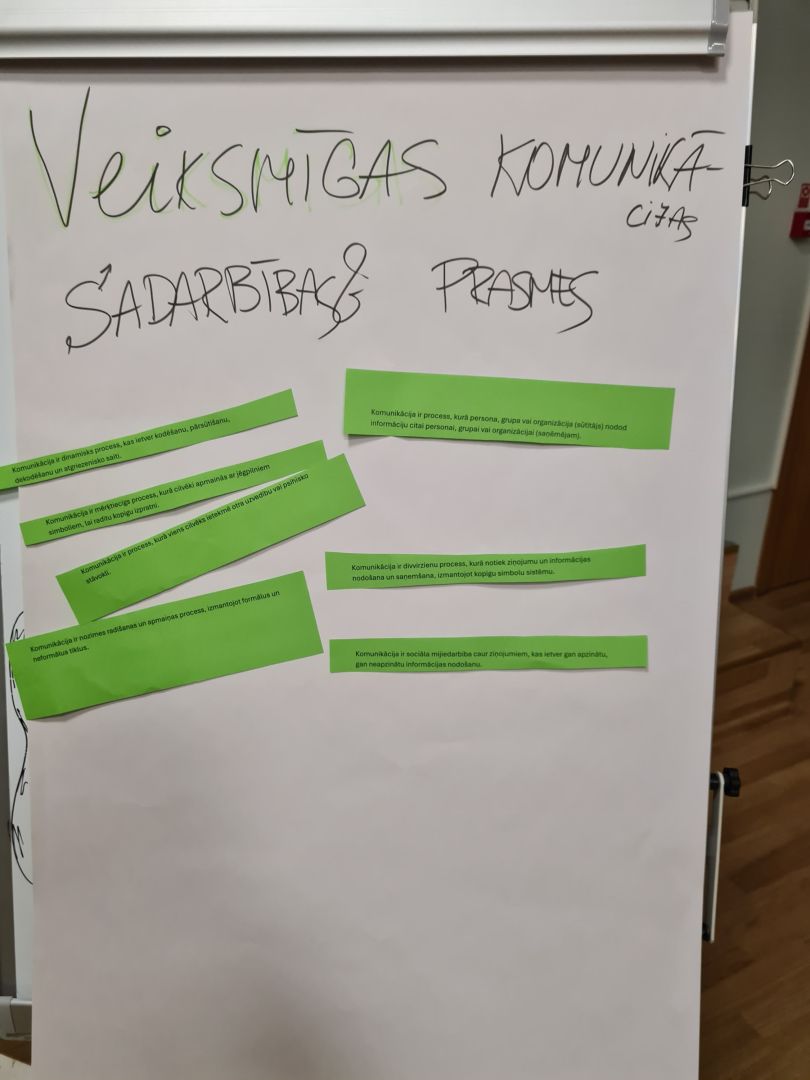 VeiKSMĪGAS KOMUNIKĀ-
CIJAS
SADARBĪBAS & PRASMES
Komunikācija ir dinamisks process, kas ietver kodēšanu, pārsūtīšanu,
dekodēšanu un atgriezenisko saiti.
Komunikācija ir mērķtiecīgs process, kurā cilvēki apmainās ar jēgpilniem
simboliem, lai radītu kopīgu izpratni.
Komunikācija ir process, kurā viens cilvēks ietekmē otra uzvedību vai psihisko
stāvokli.
Komunikācija ir nozīmes radīšanas un apmaiņas process, izmantojot formālus un
neformālus tīklus.
Komunikācija ir process, kurā persona, grupa vai organizācija (sūtītājs) nodod
informāciju citai personai, grupai vai organizācijai (saņēmējam).
Komunikācija ir divvirzienu process, kurā notiek ziņojumu un informācijas
nodošana un saņemšana, izmantojot kopīgu simbolu sistēmu.
Komunikācija ir sociāla mijiedarbība caur ziņojumiem, kas ietver gan apzinātu,
gan neapzinātu informācijas nodošanu.